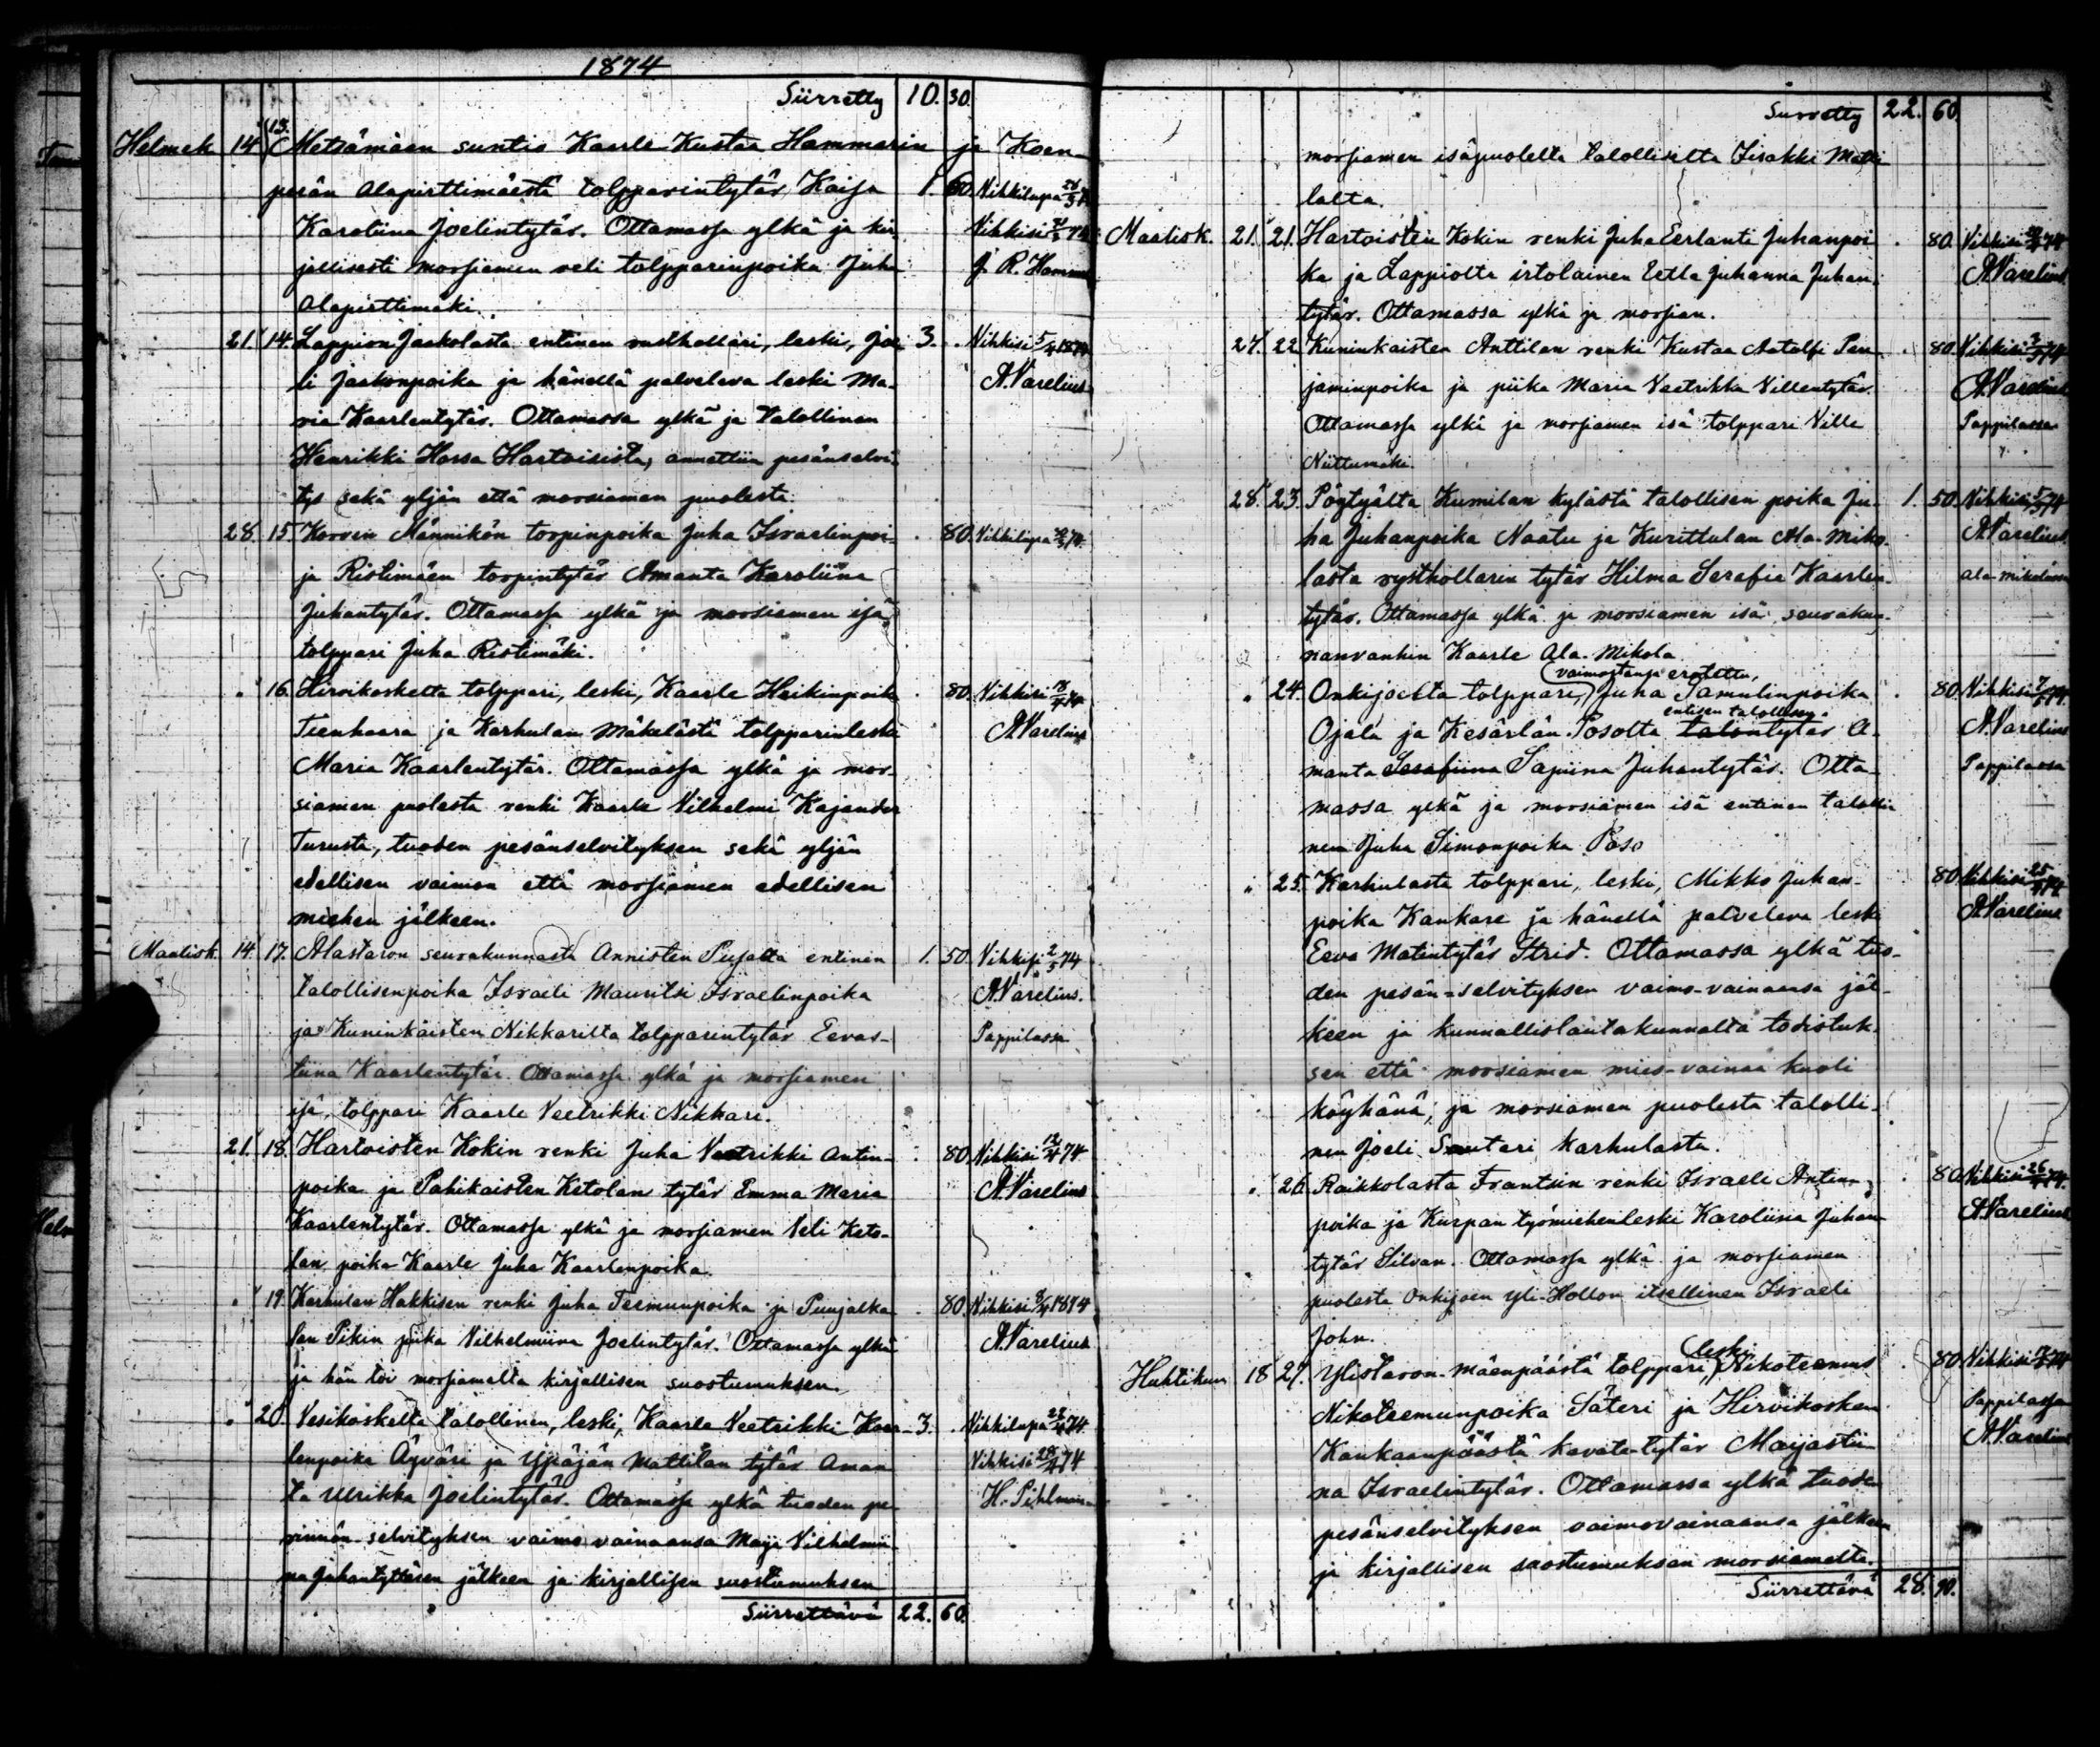 1874
Siirretty 10. 30.
Helmek 14 13. Metsämäen suntio Kaarle Kustaa Hammarin ja Koen-
perän Alapirttimäestä tolpparintytär Kaisa 1. 60. Vihkilupa
Karoliina Joelintytär. Ottamassa ylkä ja kir- Vihkisi
jallisesti morsiamen veli tolpparinpoika Juha J. R. Hamma
Alapirttimäki.
21. 14. Lappion Jaakolasta entinen rusthollari, leski, Joe- 3. . Vihkisi 5/4 1874
li Jaakonpoika ja hänellä palveleva leski Ma- A. Varelius
ria Kaarlentytär. Ottamassa ylkä ja talollinen
Henrikki Hossa Hartoisista, annettiin pesänselvi-
tys sekä yljän että morsiamen puolesta.
28. 15 Korven Männikön torpinpoika Juha Israelinpoi- . 80. Vihkilupa
ja Ristimäen torpintytär Amanta Karoliina
Juhantytär. Ottamassa ylkä ja morsiamen isä
tolppari Juha Ristimäki.
" 16. Hirvikoskelta tolppari, leski, Kaarle Heikinpoika 80. Vihkisi
Teenhaara ja Karhulan Mäkelästä tolpparinleski A. Varelius
Maria Kaarlentytär. Ottamassa ylkä ja mor-
siamen puolesta renki Kaarle Vilhelmi Kajander
Turusta, tuoden pesänselvityksen sekä yljän
edellisen vaimon että morsiamen edellisen
miehen jälkeen.
Maalisk. 14. 17. Alastaron seurakunnasta Annisten Pujolta entinen 1. 50. Vihkisi 2/5 74
talollisenpoika Israeli Mauritsi Israelinpoika A. Varelius.
ja Kuninkaisten Nikkarilta tolpparintytär Eevas- Pappilassa
tiina Kaarlentytär. Ottamassa ylkä ja morsiamen
isä, tolppari Kaarle Veetrikki Nikkari.
21. 18. Hartoisten Kokin renki Juha Veetrikki Antin- . 80. Vihkisi 12/4 74
poika ja Pahikaisten Ketolan tytär Emma Maria A. Varelius
Kaarlentytär. Ottamassa ylkä ja morsiamen veli Keto-
lan poika Kaarle Juha Kaarlenpoika.
" 19. Karhulan Hakkisen renki Juha Teemunpoika ja Puujalka- . 80. Vihkisi 1874
lan Pikin piika Vilhelmiina Joelintytär. Ottamassa ylkä A. Varelius
ja hän toi morsiamelta kirjallisen suostumuksen.
" 20. Vesikoskelta talollinen, leski, Kaarle Veetrikki Kaar- 3. . Vihkilupa 74
lenpoika Äyväri ja Ypäjän Mattilan tytär Aman- Vihkisi 28/4 74
ta Ulrikka Joelintytär. Ottamassa ylkä tuoden pe- H. Pihlman
rinnön-selvityksen vaimo vainaansa Maija Vilhelmii-
na Juhantyttären jälkeen ja kirjallisen suostumuksen
Siirrettävä 22. 60.
Siirretty 22. 60
morsiamen isäpuolelta talolliselta Iisakki Matti-
lalta.
Maalisk. 21. 21. Hartoisten Kokin renki Juha Eerlanti Juhanpoi- . 80. Vihkisi 74
ka ja Lappiolta irtolainen Eetla Juhanna Juhan- A. Varelius
tytär. Ottamassa ylkä ja morsian.
27. 22 Kuninkaisten Anttilan renki Kustaa Aatolfi Pen- . 80. Vihkisi 74
jaminpoika ja piika Maria Veetrikka Villentytär. A. Varelius
Ottamassa ylkä ja morsiamen isä tolppari Ville Pappilassa
Niittumäki.
28. 23. Pöytyältä Kumilan kylästä talollisen poika Ju- 1. 50. Vihkisi 74
ha Juhanpoika Naatu ja Kurittulan Ala-Miko- A. Varelius.
lasta rysthollarin tytär Hilma Serafia Kaarlen- Ala-Mikolassa
tytär. Ottamassa ylkä ja morsiamen isä seurakun-
nanvanhin Kaarle Ala-Mikola
vaimostansa erotettu,
" 24. Onkijoelta tolppari, Juha Samulinpoika . 80. Vihkisi 74.
entisen talollisen
Ojala ja Kesärlän Posolta talontytär A- A. Varelius
manta Serafiina Sapiina Juhantytär. Otta- Pappilassa
massa ylkä ja morsiamen isä entinen talolli-
nen Juha Simonpoika Poso
" 25. Karhulasta tolppari, leski, Mikko Juhan- 80. Vihkisi 74
poika Kankare ja hänellä palveleva leski A. Varelius
Eeva Matintytär Strid. Ottamassa ylkä tuo-
den pesän-selvityksen vaimo-vainaansa jäl-
keen ja kunnallislautakunnalta todistuk-
sen että morsiamen mies-vainaa kuoli
köyhänä; ja morsiamen puolesta talolli-
nen Joeli Sautari Karhulasta.
" 26. Raikkolasta Frantsin renki Israeli Antin- . 80. Vihkisi 26/4 74.
poika ja Kurpan työmiehenleski Karoliina Juhan- A. Varelius
tytär Silvan. Ottamassa ylkä ja morsiamen
puolesta Onkijoen Yli-Hollon itsellinen Israeli
John.
leski
Huhtikuu 18 27. Ylistaron-Mäenpäästä tolppari, Nikoteemus . 80. Vihkisi 74
Nikoteemunpoika Säteri ja Hirvikosken Pappilassa
Kankaanpäästä kavatatytär Maijastii- A. Varelius
na Israelintytär. Ottamassa ylkä tuoden
pesänselvityksen vaimovainaansa jälkeen
ja kirjallisen suostumuksen morsiamelta.
Siirrettävä 28. 90.